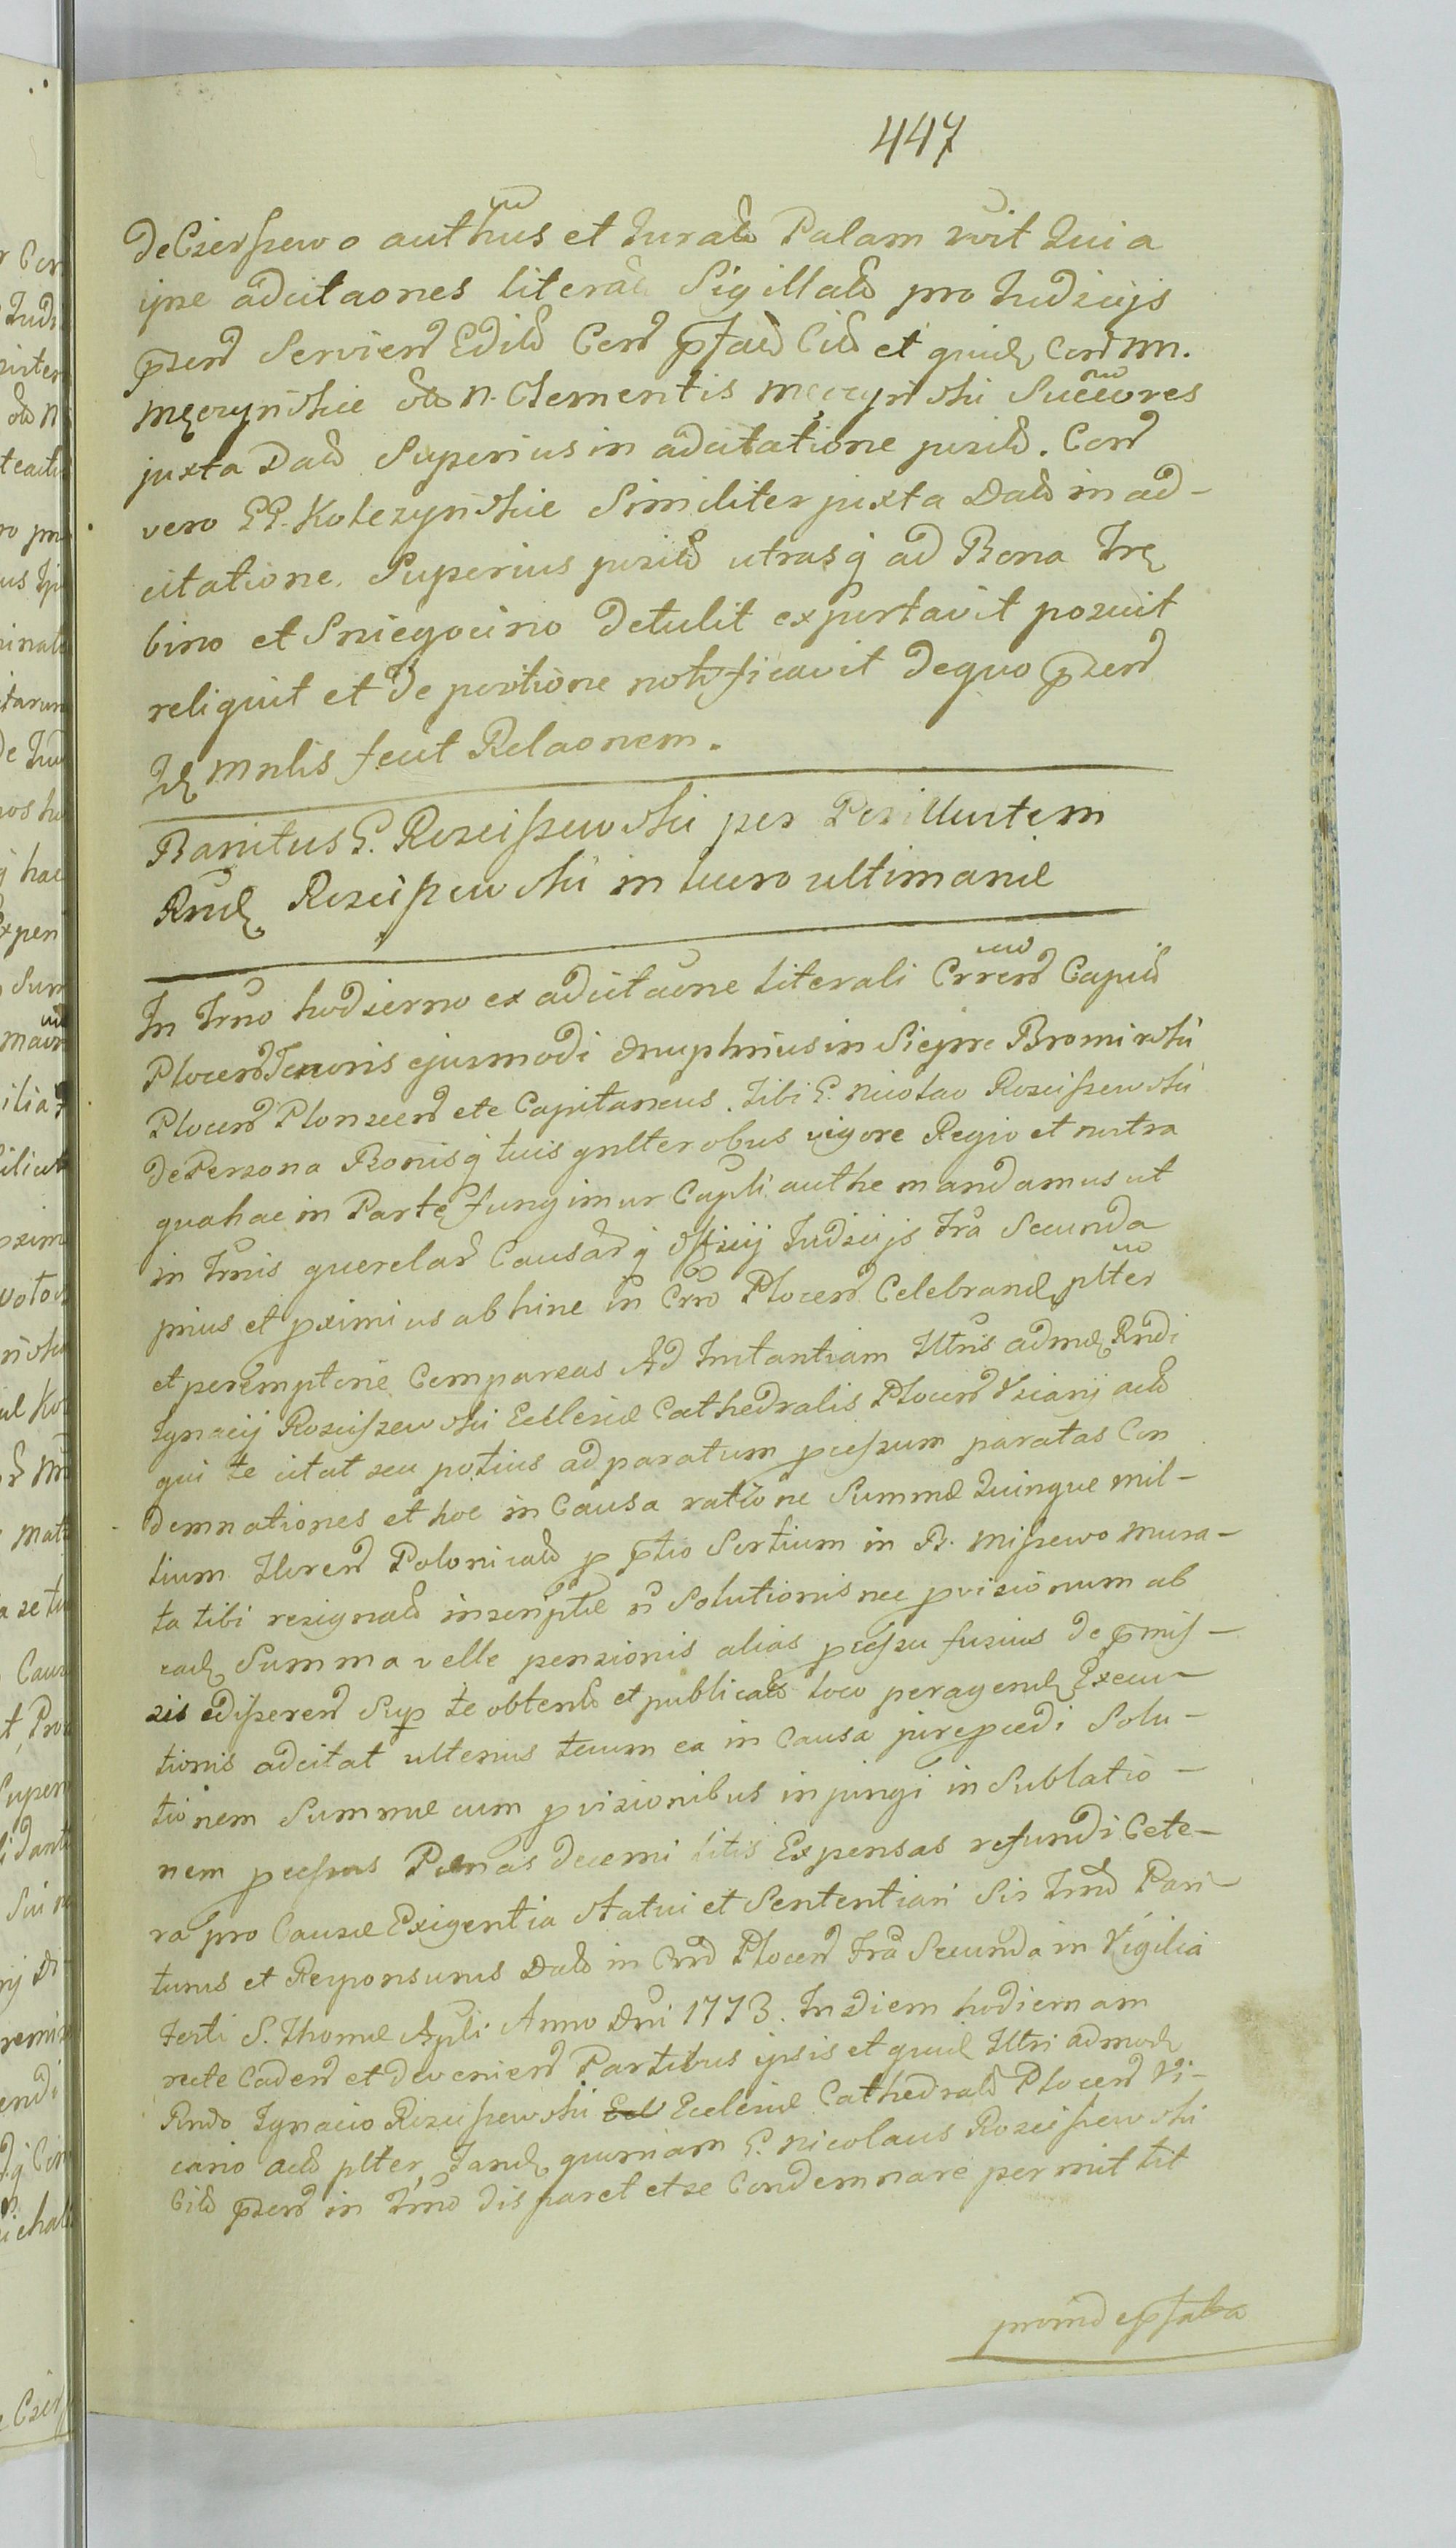 447
de Czerszewo authus et Jurat Palam rvit Quia
ipse adcitaones literales Sigillat pro Judicijs
pzent Servient Edit Cont pfat Cit et quid Cont MM.
Męczynskie olim N. Clementis Męczynski Succores
juxta Dat Superius in adcitatione posit. Cont
vero GG. Kolczynskie Similiter juxta Dat in ad-
citatione Superius posit utrasq ad Bona Trę
bino et Sniegocino detulit exportavit posuit
reliquit et de positione notificavit de quo pzent
Id Mnlis fecit Relaonem.
Banitus G. Rosciszewski per Perillustem
Rnd. Rosciszewski in lucro ultimarie
In Trno hodierno ex adcitaone literali Crrens Capit
Plocen Tenoris ejusmodi Onuphrius in Siepre Bromirski
Plocen Plonscen etc Capitaneus. Tibi G. Nicolao Rosciszewski
de Persona Bonisq tuis gnlter obus vigore Regio et nostra
qua hac in Parte fungimur Capli authe mandamus ut
in Trnis querelar Causarq Officij Judicijs Fra Secunda
prius et pximius ab hinc in Crro Plocen Celebrand plter
et peremptorie Compareas Ad Instantiam Illris admd Rndi
Ignacij Rosciszewski Ecclesiæ Cathedralis Plocen Vicarij act
qui te citat seu potius ad paratum pcessum paratas Con
demnationes et hoc in Causa ratione Summæ Quinque mil-
lium Floren Polonicat p ptio Sortium in B. Miszewo Mura-
ta tibi resignat inscriptæ n Solutionis nec pvisionum ab
ead Summa velle pensionis alias pcessu fusius de pmis-
sis edisseren Sup te obtent et publicat loco peragend Execu-
tionis adcitat ulterius tecum ea in Causa jure pcedi Solu-
tionem Summæ cum pvisionibus injungi in Sublatio-
nem pcessus Pænas decerni litis Expensas refundi Cete-
ra pro Causæ Exigentia Statui et Sententiari Sis Trno Pari-
turus et Responsurus Dat in Crro Plocen Fra Secunda in Vigilia
Festi S. Thomæ Apli Anno Dni 1773. In Diem hodiernam
recte Caden et devenien Partibus ipsis et quid Illri admod
Rndo Ignacio Rosciszewski Ecl Ecclesiæ Cathedralis Plocen Vi-
cario act plter, Tand quoniam G. Nicolaus Rosciszewski
Cit pzent in Trno dis paret et se Condemnare permittit